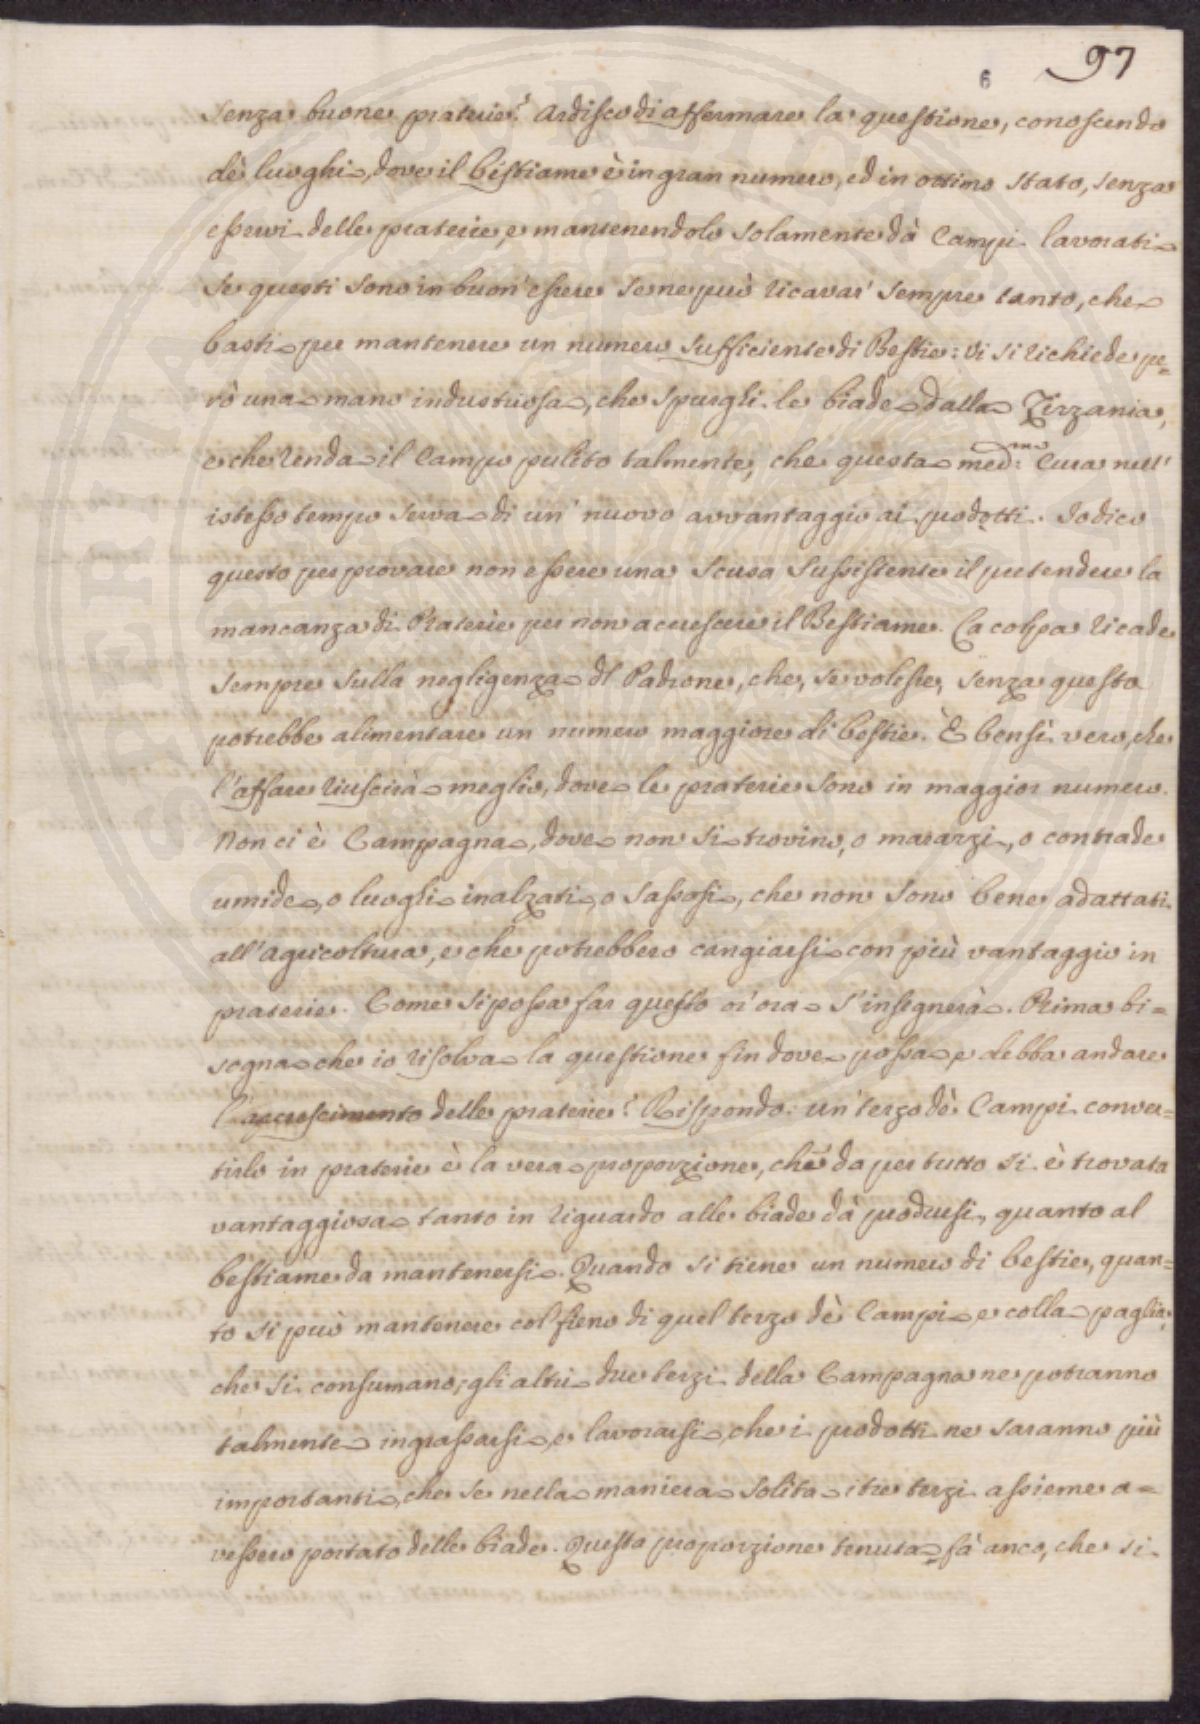 6
97
senza buone praterie? Ardisco di affermare la questione, conoscendo
dè luoghi, dove il bestiame è in gran numero, ed in ottimo stato, senza
esservi delle praterie, e mantenendolo solamente dà Campi lavorati
Se questi sono in buon' essere se ne può ricavar' sempre tanto, che
basti per mantenere un numero sufficiente di Bestie: vi si richiede pe=
rò una mano industriosa, che spurghi le biade dalla Zirzania,
e che renda il Campo pulito talmente, che questa med:ma Cura nell'
istesso tempo serva di un' nuovo avvantaggio ai prodotti. Io dico
questo per provare non essere una scusa sussistente il pretendere la
mancanza di Praterie per non accrescere il Bestiame. La colpa ricade
sempre sulla negligenza dl Padrone, che, se volesse, senza questo
potrebbe alimentare un numero maggiore di bestie. È bensì vero, che
l'affare riuscirà meglio, dove le praterie sono in maggior numero.
Non ci è Campagna, dove non si trovino, o marazzi, o contrade
umide, o luoghi inalzati, o sassosi, che non sono bene adattati
all'agricoltura, e che potrebbero cangiarsi con più vantaggio in
praterie. Come si possa far questo or' ora s'insegnerà. Prima bi=
sogna che io risolva la questione fin dove possa, e debba andare
l'accrescimento delle praterie? Rispondo: un' terzo dè Campi conver=
tirlo in praterie è la vera proporzione, che da per tutto si è trovata
vantaggiosa tanto in riguardo alle biade dà prodursi, quanto al
bestiame da mantenersi. Quando si tiene un numero di bestie, quan=
to si può mantenere col fieno di quel terzo dè Campi e colla paglia,
che si consumano; gli altri due terzi della Campagna ne potranno
talmente ingrassarsi, e lavorarsi, che i prodotti ne saranno più
importanti, che se nella maniera solita i tre terzi assieme a=
vessero portato delle biade. Questa proporzione tenuta fà anco, che si